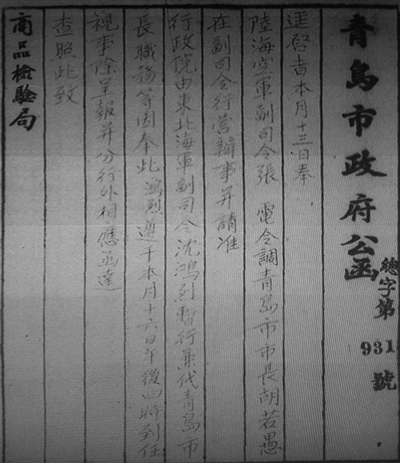 青島市政府公函
總字第931號
逕啓者本月十三日奉
陸海空軍副司令張 電令調青島市市長胡若愚
在副司令行營辦事并請准
行政院由東北海軍副司令沈鴻烈暫行兼代青島市
長職務等因奉此鴻烈遵于本月十六日午後四時到任
視事除呈報并分行外相應函達
查照此致
商品檢驗局